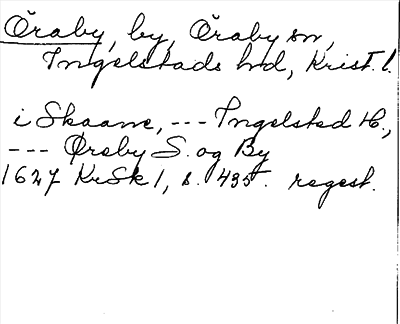 Öraby, by, Öraby sn,
Ingelstads hd, Krist. l.
i Skaane, --- Ingelsted H.,
--- Øreby S. og By
1627 KrSk 1, s. 435. regest.